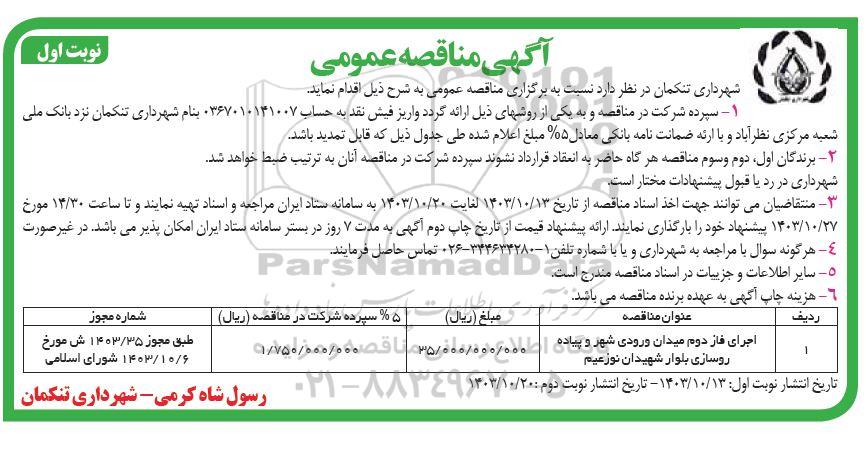 نوبت اول
آگهی مناقصه عمومی
شهرداری تنکمان در نظر دارد نسبت به برگزاری مناقصه عمومی به شرح ذیل اقدام نماید.
۱- سپرده شرکت در مناقصه و به یکی از روشهای ذیل ارائه گردد واریز فیش نقد به حساب ۰۳۶۷۰۱۰۱۴۱۰۰۷ بنام شهرداری تنکمان نزد بانک ملی
شعبه مرکزی نظرآباد و یا ارئه ضمانت نامه بانکی معادل۵% مبلغ اعلام شده طی جدول ذیل که قابل تمدید باشد.
۲- برندگان اول، دوم وسوم مناقصه هر گاه حاضر به انعقاد قرارداد نشوند سپرده شرکت در مناقصه آنان به ترتیب ضبط خواهد شد.
شهرداری در رد یا قبول پیشنهادات مختار است.
۳- متقاضیان می توانند جهت اخذ اسناد مناقصه از تاریخ ۱۴۰۳/۱۰/۱۳ لغایت ۱۴۰۳/۱۰/۲۰ به سامانه ستاد ایران مراجعه و اسناد تهیه نمایند و تا ساعت ۱۴/۳۰ مورخ
۱۴۰۳/۱۰/۲۷ پیشنهاد خود را بارگذاری نمایند. ارائه پیشنهاد قیمت از تاریخ چاپ دوم آگهی به مدت ۷ روز در بستر سامانه ستاد ایران امکان پذیر می باشد. در غیرصورت
۴- هرگونه سوال با مراجعه به شهرداری و یا با شماره تلفن۱-۳۴۴۶۳۴۲۸۰-۰۲۶ تماس حاصل فرمایند.
۵- سایر اطلاعات و جزییات در اسناد مناقصه مندرج است.
۶- هزینه چاپ آگهی به عهده برنده مناقصه می باشد.
ردیف عنوان مناقصه مبلغ (ریال) ۵ % سپرده شرکت در مناقصه (ریال) شماره مجوز
۱ اجرای فاز دوم میدان ورودی شهر و پیاده روسازی بلوار شهیدان نوزعیم ۳۵/۰۰۰/۰۰۰/۰۰۰ ۱/۷۵۰/۰۰۰/۰۰۰ طبق مجوز ۱۴۰۳/۳۵ ش مورخ ۱۴۰۳/۱۰/۶ شورای اسلامی
تاریخ انتشار نوبت اول: ۱۴۰۳/۱۰/۱۳- تاریخ انتشار نوبت دوم :۱۴۰۳/۱۰/۲۰
رسول شاه کرمی- شهرداری تنکمان
ParsNamadData
۰۲۱-۸۸۳۴۹۶۷۰-۵